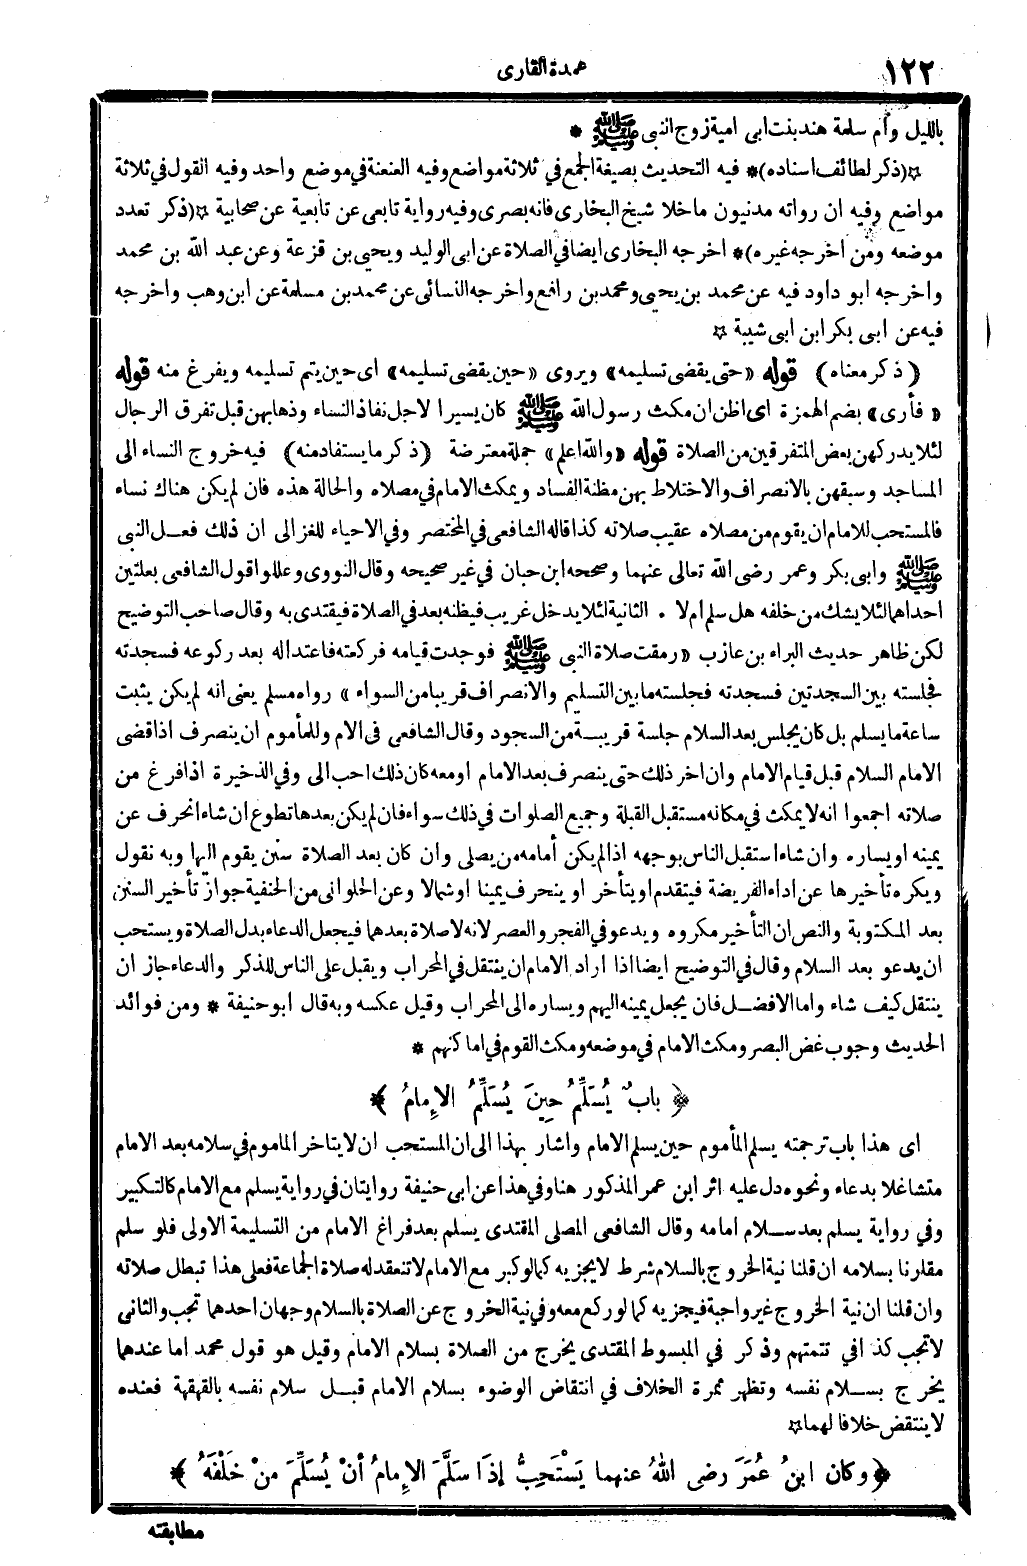 ١٢٢
عمدة القارى
بالليل وأم سلمة هند بنت ابى امية زوج النبى ﷺ *
☆(ذكر لطائف اسناده)* فيه التحديث بصيغة الجمع فى ثلاثة مواضع وفيه العنعنة فى موضع واحد وفيه القول فى ثلاثة
مواضع وفيه ان رواته مدنيون ما خلا شيخ البخارى فانه بصرى وفيه رواية تابعى عن تابعية عن صحابية ☆(ذكر تعدد
موضعه ومن أخرجه غيره)* اخرجه البخارى ايضا فى الصلاة عن ابى الوليد ويحيى بن قزعة وعن عبد الله بن محمد
واخرجه ابو داود فيه عن محمد بن يحيى ومحمد بن رافع واخرجه النسائى عن محمد بن مسلمة عن ابن وهب واخرجه
فيه عن ابى بكر ابن ابى شيبة ☆
(ذكر معناه) قوله «حتى يقضى تسليمه» ويروى «حين يقضى تسليمه» اى حين يتم تسليمه ويفرغ منه قوله
«فأرى» بضم الهمزة اى اظن ان مكث رسول الله ﷺ كان يسيرا لاجل نفاذ النساء وذهابهن قبل تفرق الرجال
لئلا يدركهن بعض المتفرقين من الصلاة قوله «والله اعلم» جملة معترضة (ذكر ما يستفاد منه) فيه خروج النساء الى
المساجد وسبقهن بالانصراف والاختلاط بهن مظنة الفساد ويمكث الامام فى مصلاه والحالة هذه فان لم يكن هناك نساء
فالمستحب للامام ان يقوم من مصلاه عقيب صلاته كذا قاله الشافعى فى المختصر وفى الاحياء للغزالى ان ذلك فعل النبى
ﷺ وابى بكر وعمر رضى الله تعالى عنهما وصححه ابن حبان فى غير صحيحه وقال النووى وعللوا قول الشافعى بعلتين
احداهما لئلا يشك من خلفه هل سلم ام لا . الثانية لئلا يدخل غريب فيظنه بعد فى الصلاة فيقتدى به وقال صاحب التوضيح
لكن ظاهر حديث البراء بن عازب «رمقت صلاة النبى ﷺ فوجدت قيامه فركعته فاعتداله بعد ركوعه فسجدته
فجلسته بين السجدتين فسجدته فجلسته ما بين التسليم والانصراف قريبا من السواء» رواه مسلم يعنى انه لم يكن يثبت
ساعة ما يسلم بل كان يجلس بعد السلام جلسة قريبة من السجود وقال الشافعى فى الام وللمأموم ان ينصرف اذا قضى
الامام السلام قبل قيام الامام وان اخر ذلك حتى ينصرف بعد الامام او معه كان ذلك احب الى وفى الذخيرة اذا فرغ من
صلاته اجمعوا انه لا يمكث فى مكانه مستقبل القبلة وجميع الصلوات فى ذلك سواء فان لم يكن بعدها تطوع ان شاء انحرف عن
يمينه او يساره وان شاء استقبل الناس بوجهه اذا لم يكن أمامه من يصلى وان كان بعد الصلاة سنن يقوم اليها وبه نقول
ويكره تأخيرها عن اداء الفريضة فيتقدم او يتأخر او ينحرف يمينا او شمالا وعن الحلوانى من الحنفية جواز تأخير السنن
بعد المكتوبة والنص ان التأخير مكروه ويدعو فى الفجر والعصر لانه لا صلاة بعدهما فيجعل الدعاء بدل الصلاة ويستحب
ان يدعو بعد السلام وقال فى التوضيح ايضا اذا اراد الامام ان ينتقل فى المحراب ويقبل على الناس للذكر والدعاء جاز ان
ينتقل كيف شاء واما الافضل فان يجعل يمينه اليهم ويساره الى المحراب وقيل عكسه وبه قال ابو حنيفة * ومن فوائد
الحديث وجوب غض البصر ومكث الامام فى موضعه ومكث القوم فى اماكنهم *
﴿ بابٌ يُسَلِّمُ حِينَ يُسَلِّمُ الإِمامُ ﴾
اى هذا باب ترجمته يسلم المأموم حين يسلم الامام واشار بهذا الى ان المستحب ان لا يتاخر الماموم فى سلامه بعد الامام
متشاغلا بدعاء ونحوه دل عليه اثر ابن عمر المذكور هنا وفى هذا عن ابى حنيفة روايتان فى رواية يسلم مع الامام كالتكبير
وفى رواية يسلم بعد سلام امامه وقال الشافعى المصلى المقتدى يسلم بعد فراغ الامام من التسليمة الاولى فلو سلم
مقارنا بسلامه ان قلنا نية الخروج بالسلام شرط لا يجزيه كما لو كبر مع الامام لا تنعقد له صلاة الجماعة فعلى هذا تبطل صلاته
وان قلنا ان نية الخروج غير واجبة فيجزيه كما لو ركع معه وفى نية الخروج عن الصلاة بالسلام وجهان احدهما تجب والثانى
لا تجب كذا فى تتمتهم وذكر فى المبسوط المقتدى يخرج من الصلاة بسلام الامام وقيل هو قول محمد اما عندهما
يخرج بسلام نفسه وتظهر ثمرة الخلاف فى انتقاض الوضوء بسلام الامام قبل سلام نفسه بالقهقهة فعنده
لا ينتقض خلافا لهما ☆
﴿ وكان ابنُ عُمَرَ رضى اللهُ عنهما يَسْتَحِبُّ إذَا سَلَّمَ الإمامُ أنْ يُسَلِّمَ منْ خَلْفَهُ ﴾
مطابقته